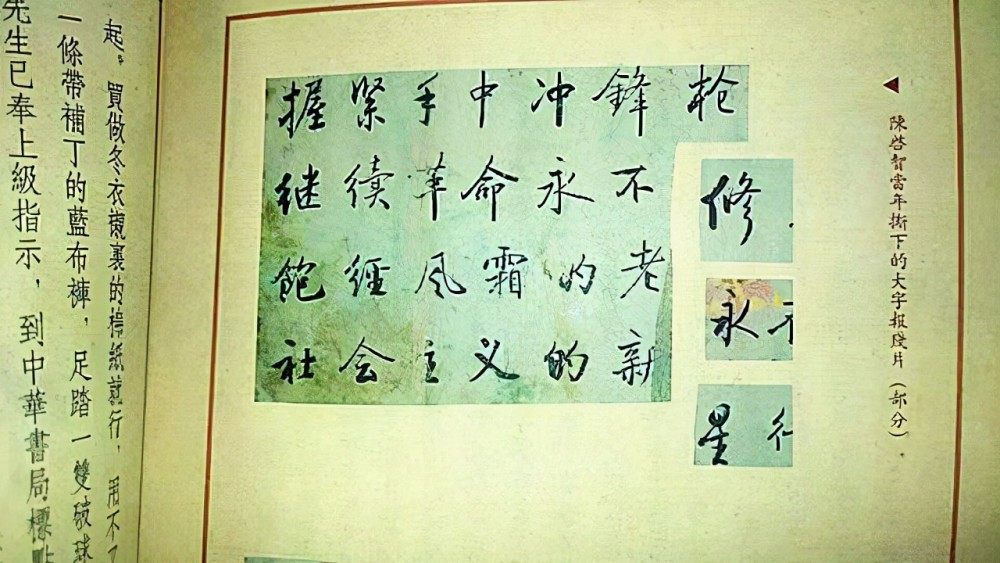 握緊手中冲鋒枪
继續革命永不
飽經风霜的老
社会主义的新
修
永不
星
◀陳啓智當年撕下的大字報殘片(部分)
起。買做冬衣襯裏的棉紙就行,用不了
一條帶補丁的藍布褲,足踏一雙破球
先生已奉上級指示,到中華書局標點